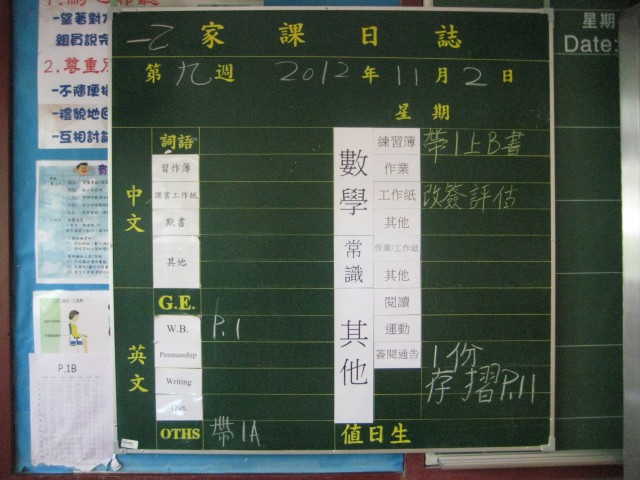 一乙 家課日誌
第九週 2012年11月2日
星期
中文
詞語
習作簿
課業工作紙
默書
其他
G.E.
英文
W.B. P.1
Penmanship
Writing
Dict.
OTHS 帶1A
數學
練習簿 帶1上B書
作業
工作紙 改簽評估
其他
常識
作業/工作紙
其他
其他
閱讀
運動
簽閱通告 1份
存摺P.11
值日生
-望著對方
組員說完
2.尊重別
-不隨便插
-禮貌地回
-互相討論
P.1B
星期
Date: